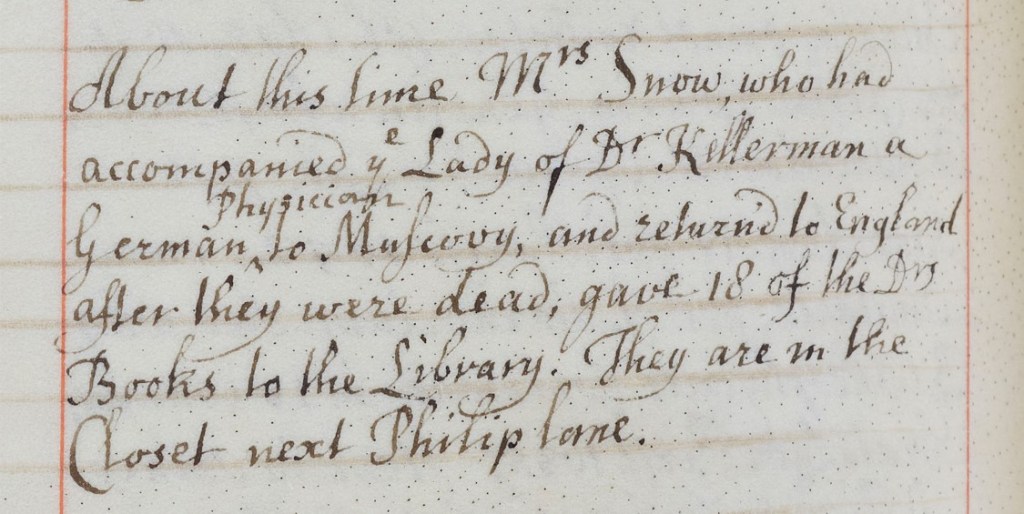 About this time Mrs Snow, who had
accompanied ye Lady of Dr Kellerman a
Physician
German ^ to Muscovy, and return'd to England
after they were dead, gave 18 of the Drs
Books to the Library. They are in the
Closet next Philip lane.